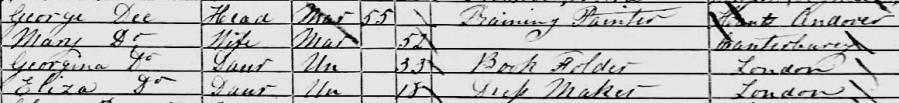 George Dee Head Mar 55 Painter Hants Andover
Mary Do Wife Mar 52 Canterbury
Georgina Do Daur Un 33 Book Folder London
Eliza Do Daur Un 18 Maker London